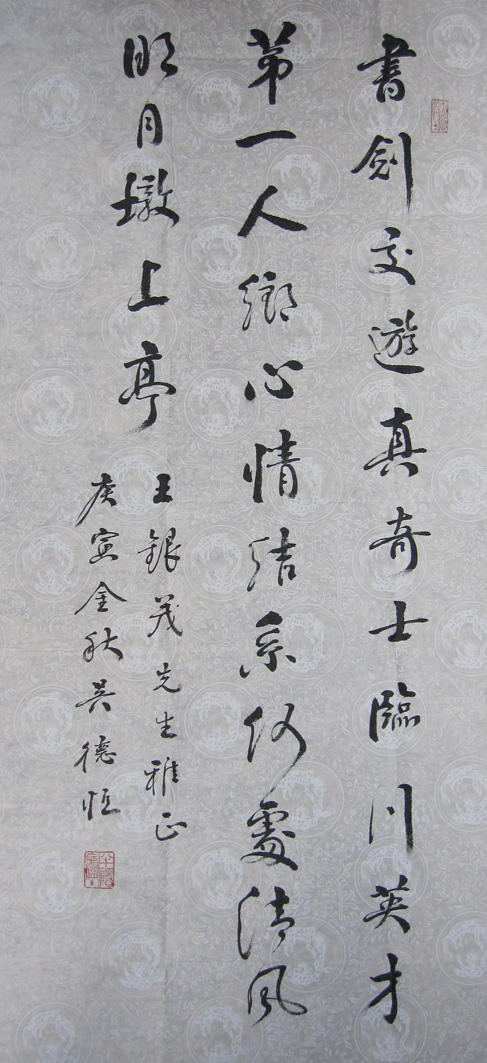 書劍交遊真奇士臨川英才
第一人鄉心情结系何處清風
明月墩上亭
王銀茂先生雅正
庚寅金秋吴德恒